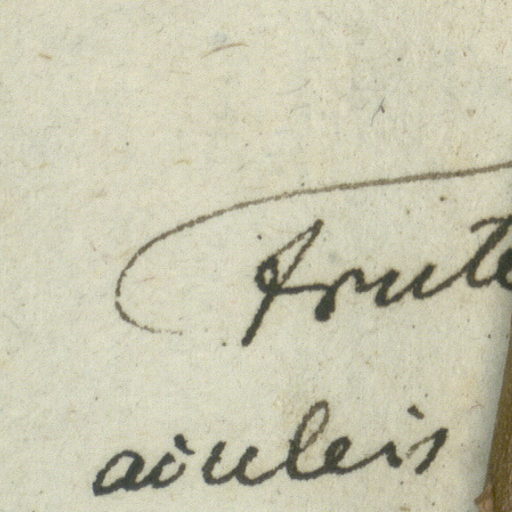 frute
aculeis